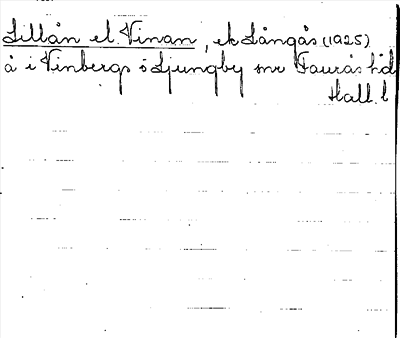 Lillån el. Vinan, ek Långås (1925)
å i Vinbergs o Ljungby snr Faurås hd
Hall. l